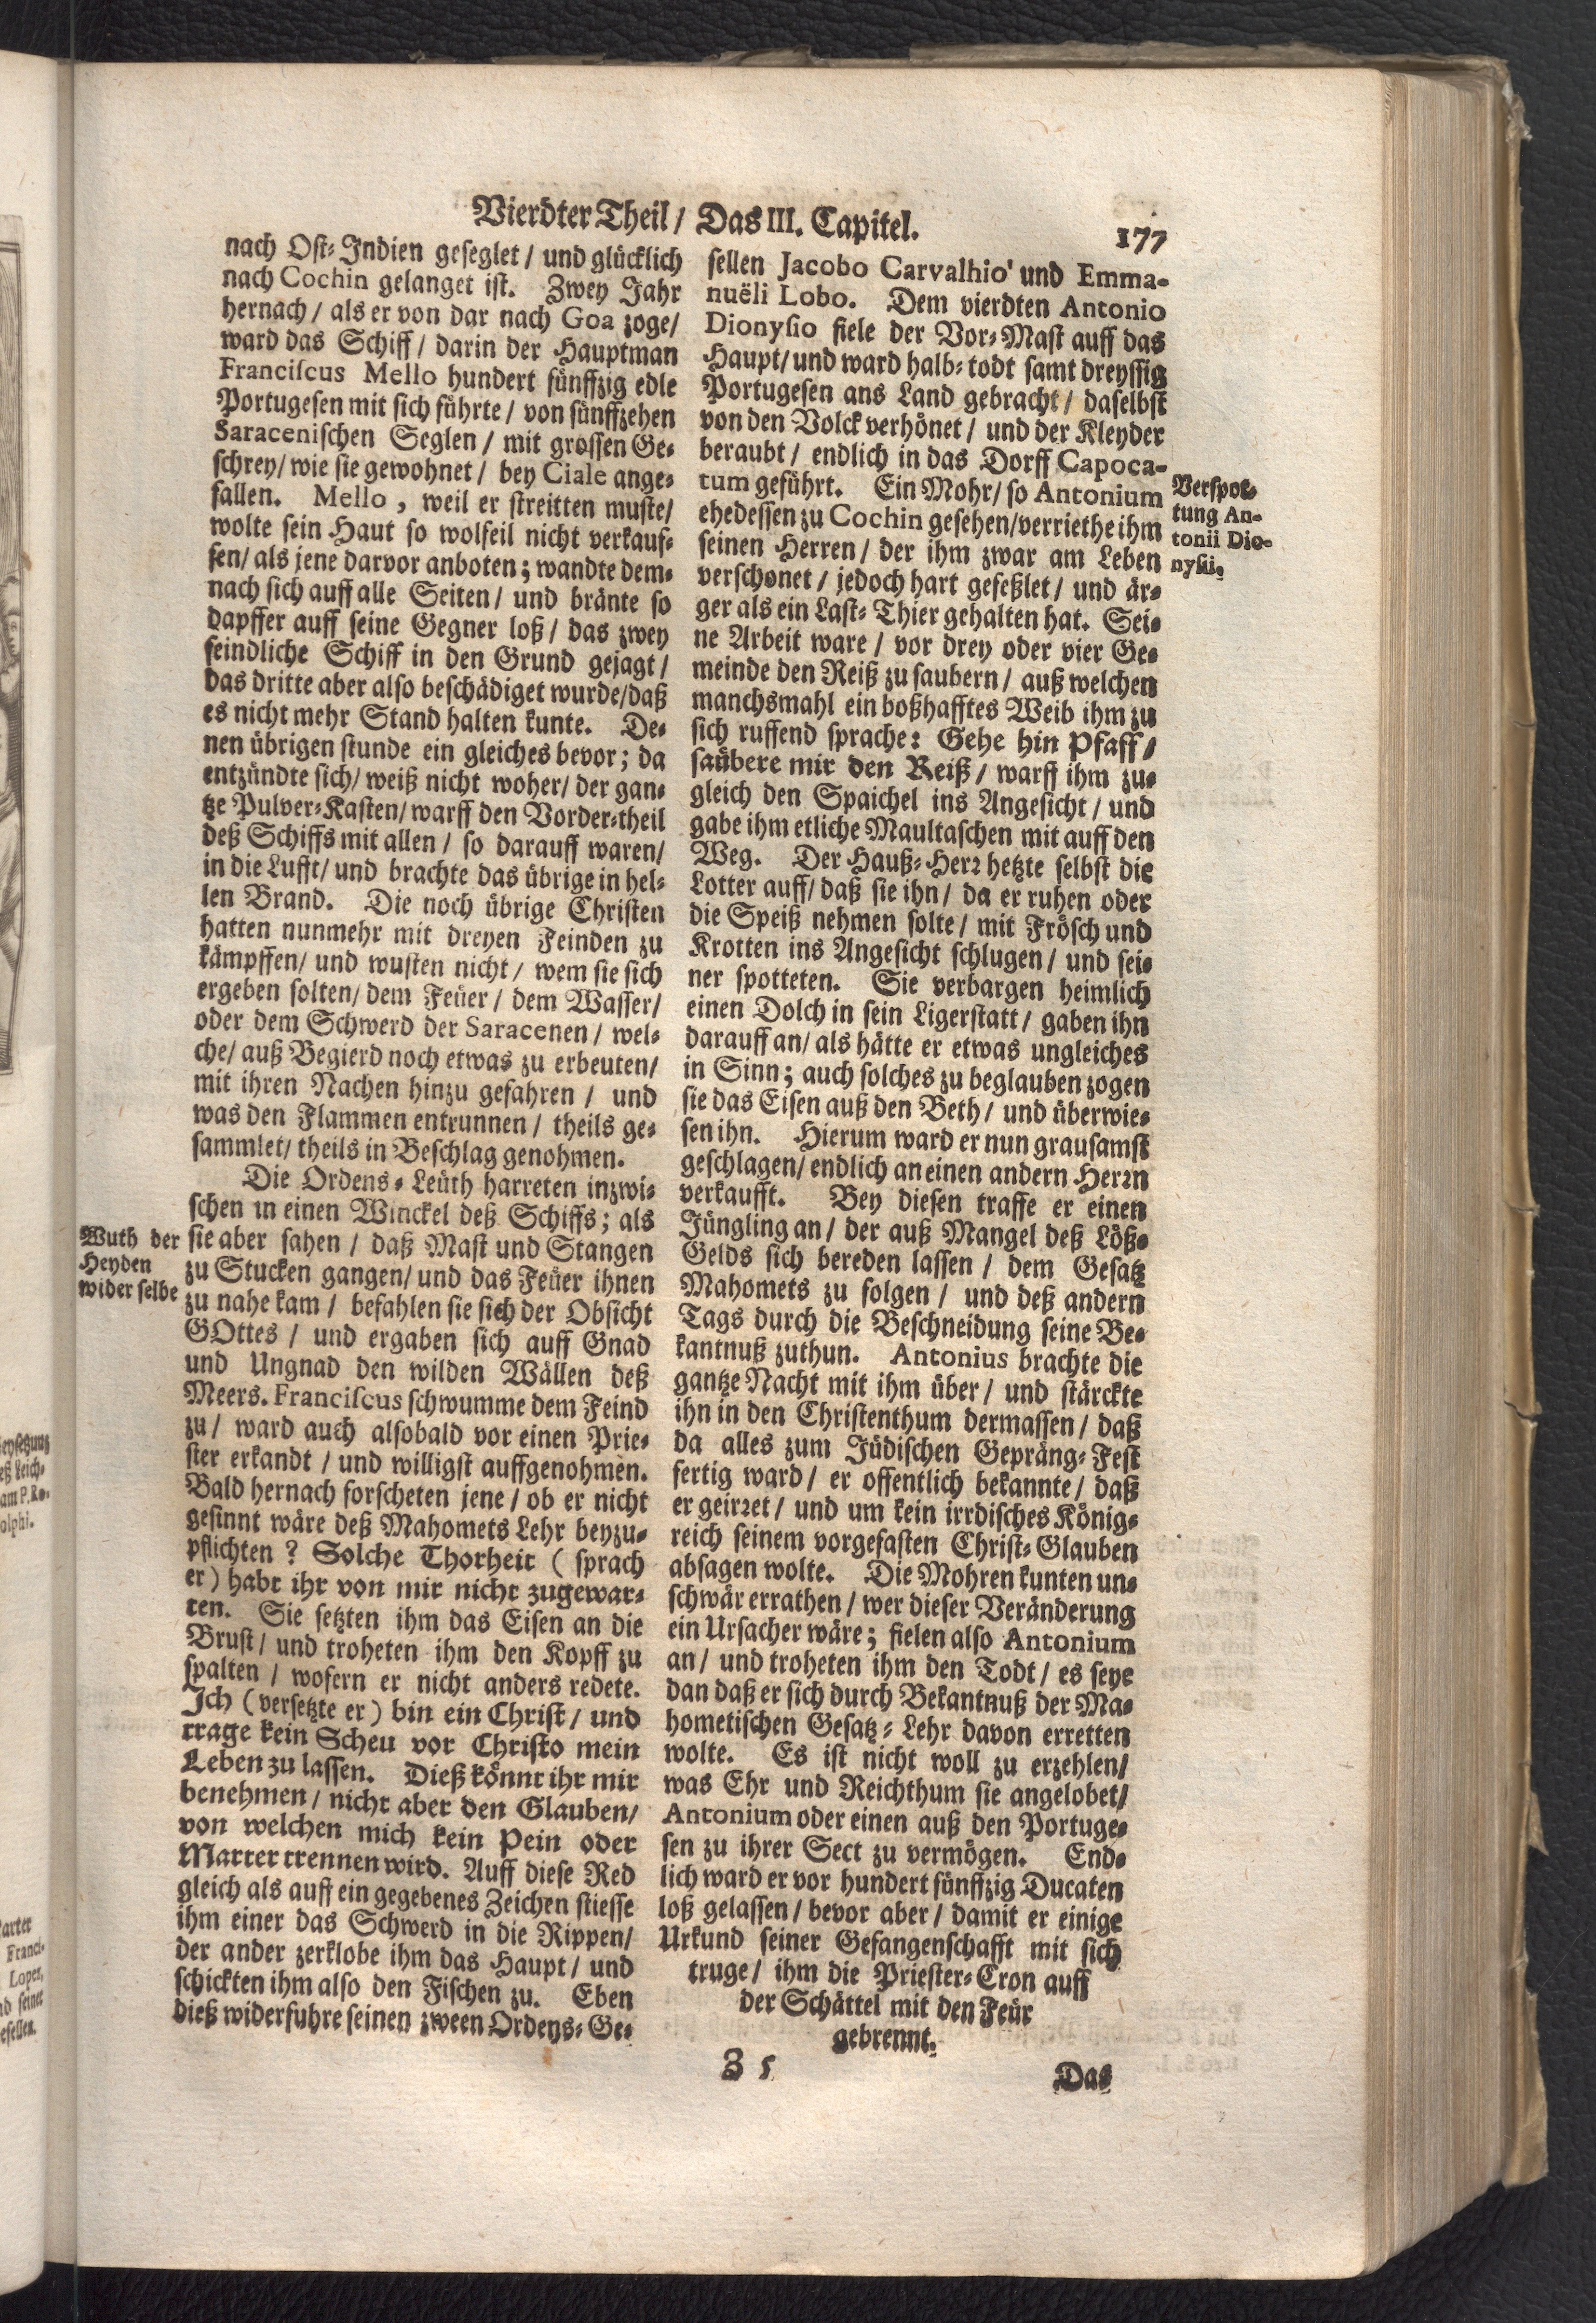 Vierdter Theil / Das III. Capitel.
177
nach Ost-Indien geseglet / und glücklich
nach Cochin gelanget ist. Zwey Jahr
hernach / als er von dar nach Goa zoge /
ward das Schiff / darin der Hauptman
Franciscus Mello hundert fünffzig edle
Portugesen mit sich führte / von fünffzehen
Saracenischen Seglen / mit grossen Ge-
schrey / wie sie gewohnet / bey Ciale ange-
fallen. Mello, weil er streitten muste /
wolte sein Haut so wolfeil nicht verkauf-
fen / als jene darvor anboten; wandte dem-
nach sich auff alle Seiten / und bränte so
dapffer auff seine Gegner loß / das zwey
feindliche Schiff in den Grund gejagt /
das dritte aber also beschädiget wurde / daß
es nicht mehr Stand halten kunte. De-
nen übrigen stunde ein gleiches bevor; da
entzündte sich / weiß nicht woher / der gan-
tze Pulver-Kasten / warff den Vorder-theil
deß Schiffs mit allen / so darauff waren /
in die Lufft / und brachte das übrige in hel-
len Brand. Die noch übrige Christen
hatten nunmehr mit dreyen Feinden zu
kämpffen / und wusten nicht / wem sie sich
ergeben solten / dem Feüer / dem Wasser /
oder dem Schwerd der Saracenen / wel-
che / auß Begierd noch etwas zu erbeuten /
mit ihren Nachen hinzu gefahren / und
was den Flammen entrunnen / theils ge-
sammlet / theils in Beschlag genohmen.
Die Ordens-Leüth harreten inzwi-
schen in einen Winckel deß Schiffs; als
sie aber sahen / daß Mast und Stangen
zu Stucken gangen / und das Feüer ihnen
zu nahe kam / befahlen sie sich der Obsicht
GOttes / und ergaben sich auff Gnad
und Ungnad den wilden Wällen deß
Meers. Franciscus schwumme dem Feind
zu / ward auch alsobald vor einen Prie-
ster erkandt / und willigst auffgenohmen.
Bald hernach forscheten jene / ob er nicht
gesinnt wäre deß Mahomets Lehr beyzu-
pflichten? Solche Thorheit (sprach
er) habt ihr von mir nicht zugewar-
ten. Sie setzten ihm das Eisen an die
Brust / und troheten ihm den Kopff zu
spalten / wofern er nicht anders redete.
Ich (versetzte er) bin ein Christ / und
trage kein Scheu vor Christo mein
Leben zu lassen. Dieß könnt ihr mir
benehmen / nicht aber den Glauben /
von welchen mich kein Pein oder
Marter trennen wird. Auff diese Red
gleich als auff ein gegebenes Zeichen stiesse
ihm einer das Schwerd in die Rippen /
der ander zerklobe ihm das Haupt / und
schickten ihm also den Fischen zu. Eben
dieß widerfuhre seinen zween Ordens-Ge-
Wuth der
Heyden
wider selbe
sellen Jacobo Carvalhio und Emma-
nuëli Lobo. Dem vierdten Antonio
Dionysio fiele der Vor-Mast auff das
Haupt / und ward halb-todt samt dreyssig
Portugesen ans Land gebracht / daselbst
von den Volck verhönet / und der Kleyder
beraubt / endlich in das Dorff Capoca-
tum geführt. Ein Mohr / so Antonium
ehedessen zu Cochin gesehen / verriethe ihm
seinen Herren / der ihm zwar am Leben
verschonet / jedoch hart gefeßlet / und är-
ger als ein Last-Thier gehalten hat. Sei-
ne Arbeit ware / vor drey oder vier Ge-
meinde den Reiß zu saubern / auß welchen
manchsmahl ein boßhafftes Weib ihm zu
sich ruffend sprache: Gehe hin Pfaff /
saübere mir den Reiß / warff ihm zu-
gleich den Spaichel ins Angesicht / und
gabe ihm etliche Maultaschen mit auff den
Weg. Der Hauß-Herr hetzte selbst die
Lotter auff / daß sie ihn / da er ruhen oder
die Speiß nehmen solte / mit Frösch und
Krotten ins Angesicht schlugen / und sei-
ner spotteten. Sie verbargen heimlich
einen Dolch in sein Ligerstatt / gaben ihn
darauff an / als hätte er etwas ungleiches
in Sinn; auch solches zu beglauben zogen
sie das Eisen auß den Beth / und überwie-
sen ihn. Hierum ward er nun grausamst
geschlagen / endlich an einen andern Herrn
verkaufft. Bey diesen traffe er einen
Jüngling an / der auß Mangel deß Löß-
Gelds sich bereden lassen / dem Gesatz
Mahomets zu folgen / und deß andern
Tags durch die Beschneidung seine Be-
kantnuß zuthun. Antonius brachte die
gantze Nacht mit ihm über / und stärckte
ihn in den Christenthum dermassen / daß
da alles zum Jüdischen Gepräng-Fest
fertig ward / er offentlich bekannte / daß
er geirret / und um kein irrdisches König-
reich seinem vorgefasten Christ-Glauben
absagen wolte. Die Mohren kunten un-
schwär errathen / wer dieser Veränderung
ein Ursacher wäre; fielen also Antonium
an / und troheten ihm den Todt / es seye
dan daß er sich durch Bekantnuß der Ma-
hometischen Gesatz-Lehr davon erretten
wolte. Es ist nicht woll zu erzehlen /
was Ehr und Reichthum sie angelobet /
Antonium oder einen auß den Portuge-
sen zu ihrer Sect zu vermögen. End-
lich ward er vor hundert fünffzig Ducaten
loß gelassen / bevor aber / damit er einige
Urkund seiner Gefangenschafft mit sich
truge / ihm die Priester-Cron auff
der Schättel mit den Feür
gebrennt.
Verspot-
tung An-
tonii Dio-
nysii.
Z 5
Das